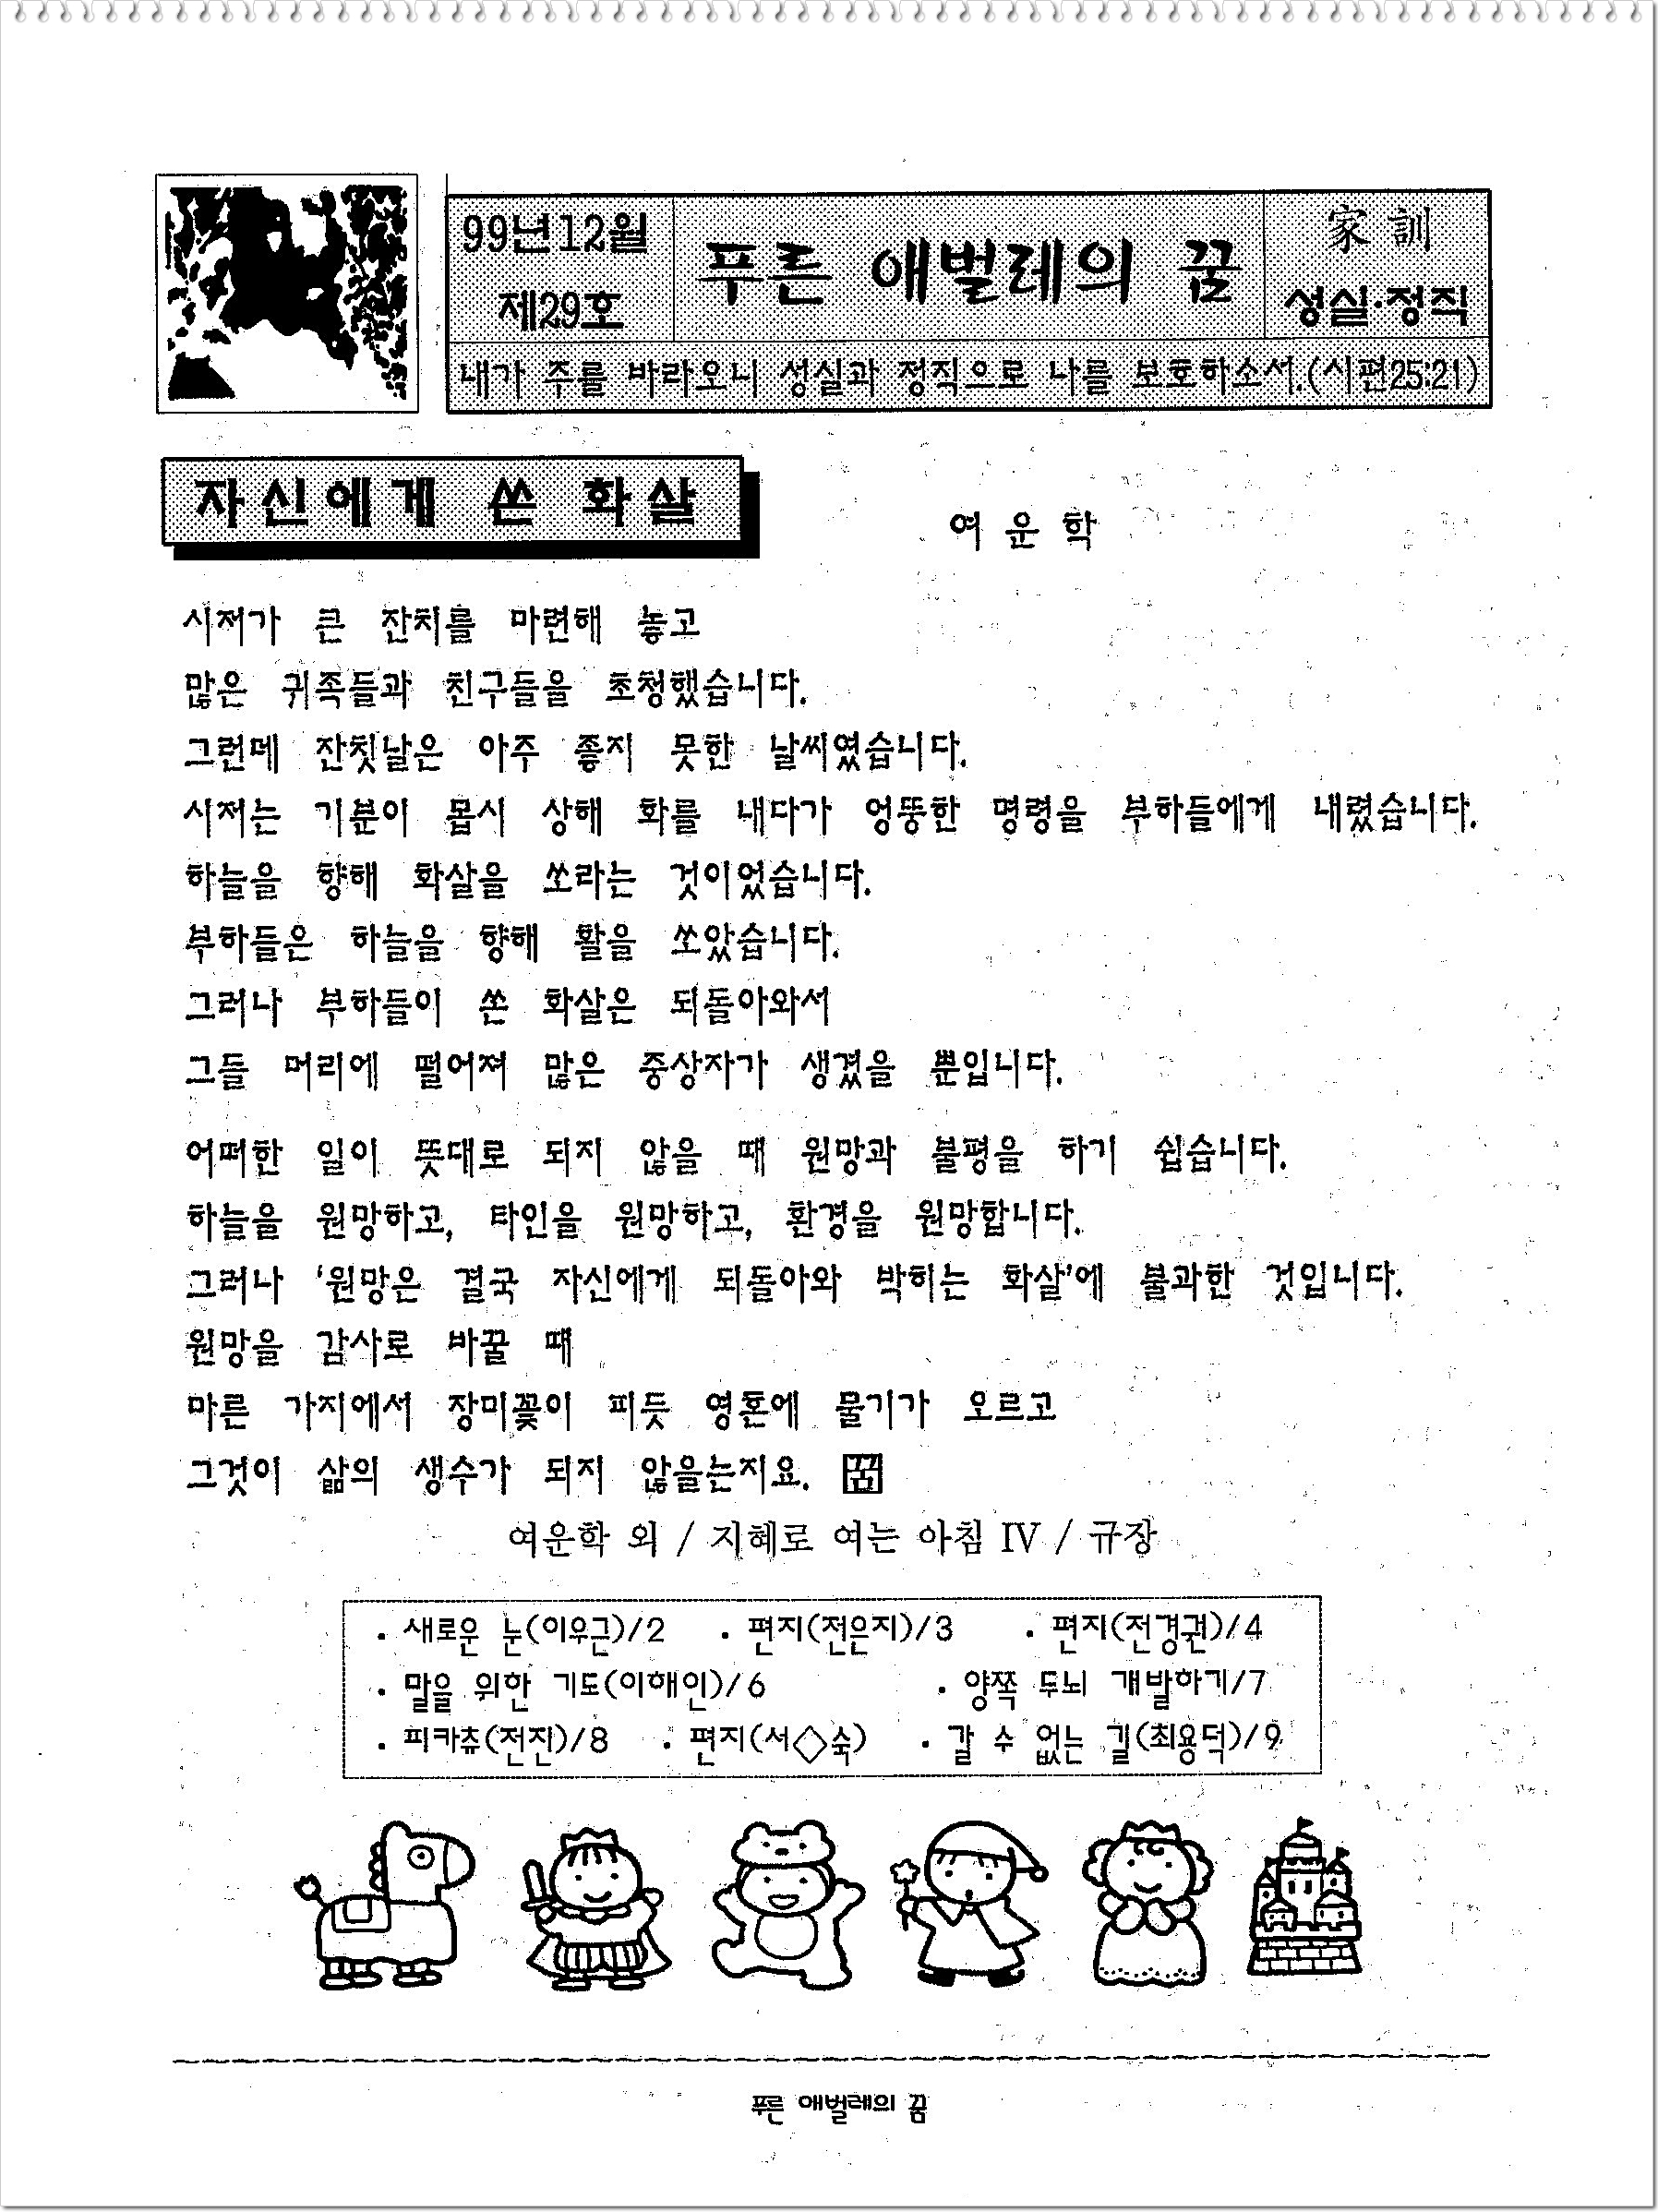 99년12월
제29호
푸른 애벌레의 꿈
家訓
성실·정직
내가 주를 바라오니 성실과 정직으로 나를 보호하소서.(시편25:21)
자신에게 쏜 화살
여운학
시저가 큰 잔치를 마련해 놓고
많은 귀족들과 친구들을 초청했습니다.
그런데 잔칫날은 아주 좋지 못한 날씨였습니다.
시저는 기분이 몹시 상해 화를 내다가 엉뚱한 명령을 부하들에게 내렸습니다.
하늘을 향해 화살을 쏘라는 것이었습니다.
부하들은 하늘을 향해 활을 쏘았습니다.
그러나 부하들이 쏜 화살은 되돌아와서
그들 머리에 떨어져 많은 중상자가 생겼을 뿐입니다.
어떠한 일이 뜻대로 되지 않을 때 원망과 불평을 하기 쉽습니다.
하늘을 원망하고, 타인을 원망하고, 환경을 원망합니다.
그러나 '원망은 결국 자신에게 되돌아와 박히는 화살'에 불과한 것입니다.
원망을 감사로 바꿀 때
마른 가지에서 장미꽃이 피듯 영혼에 물기가 오르고
그것이 삶의 생수가 되지 않을는지요. 꿈
여운학 외 / 지혜로 여는 아침 IV / 규장
· 새로운 눈(이우근)/2 · 편지(전은지)/3 · 편지(전경권)/4
· 말을 위한 기도(이해인)/6 · 양쪽 두뇌 개발하기/7
· 피카츄(전진)/8 · 편지(서◇숙) · 갈 수 없는 길(최용덕)/9
푸른 애벌레의 꿈